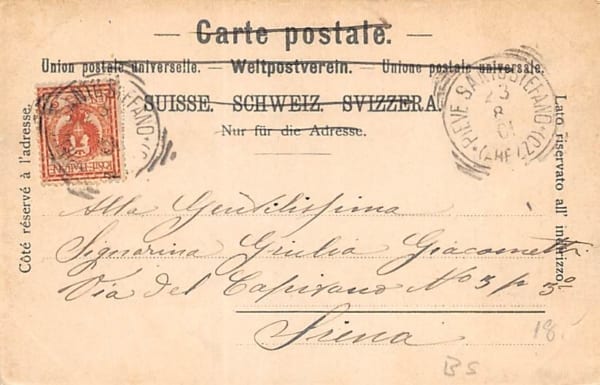 Carte postale.
Union postale universelle. — Weltpostverein. — Unione postale universale.
SUISSE. SCHWEIZ. SVIZZERA.
Nur für die Adresse.
Côté réservé à l'adresse.
Lato riservato all' indirizzo.
PIEVE SANTO STEFANO
(AREZZO)
23
8
01
SANTO STEFANO
Alla Gentilissima
Signorina Giulia Giacometti
Via del Capitano No 3 p 3o
Siena
18.
BS